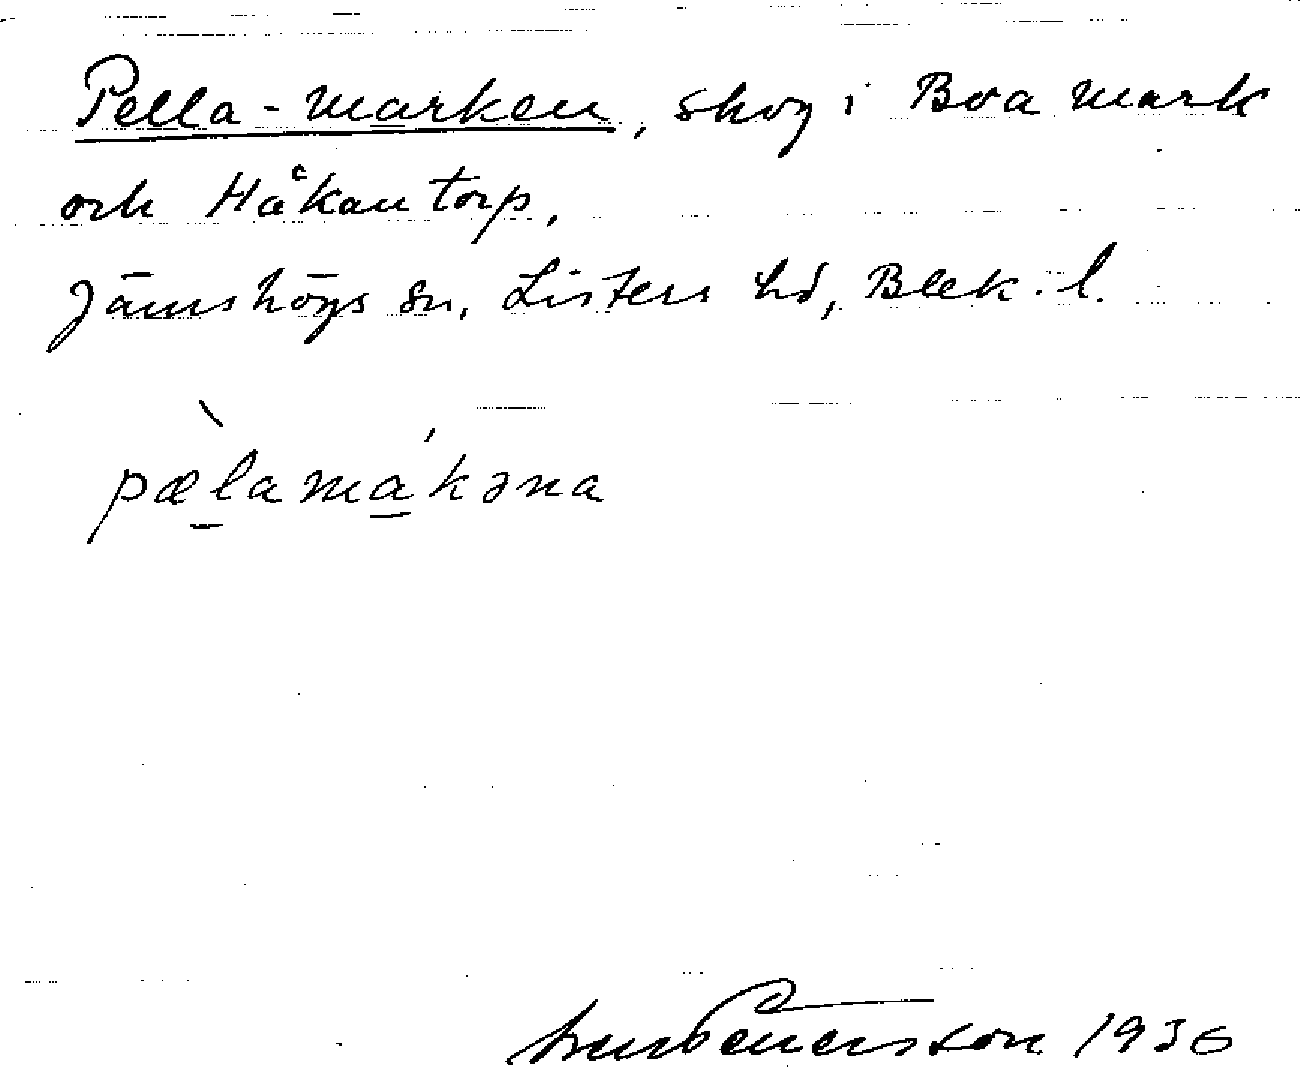 Pella-marken, skog i Boa mark
och Håkantorp,
Jämshögs sn, Listers hd, Blek. l.
pæ̀lamákəna
1936